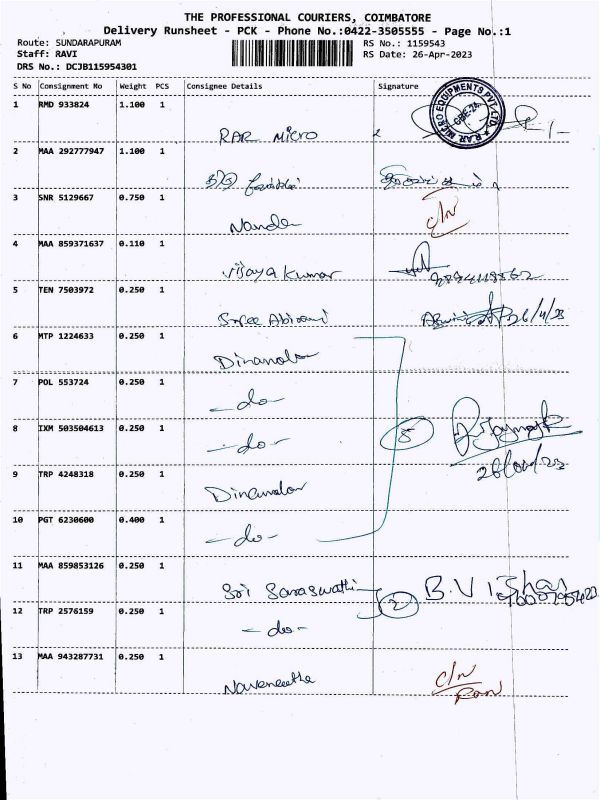 THE PROFESSIONAL COURIERS, COIMBATORE
Delivery Runsheet - PCK - Phone No.:0422-3505555 - Page No.:1
Route: SUNDARAPURAM
Staff: RAVI
DRS No.: DCJB115954301
RS No.: 1159543
RS Date: 26-Apr-2023
S No Consignment No Weight PCS Consignee Details Signature
1 RMD 933824 1.100 1
RAR MICRO
RAR MICRO EQUIPMENTS PVT. LTD.
CBE-24
2 MAA 292777947 1.100 1
3 SNR 5129667 0.750 1
Nanda C/N
4 MAA 859371637 0.110 1
Vijaya Kumar
5 TEN 7503972 0.250 1
Sree Abirami 26/4/23
6 MTP 1224633 0.250 1
Dinamalar
7 POL 553724 0.250 1
-do-
8 IXM 503504613 0.250 1
-do- 5
9 TRP 4248318 0.250 1
Dinamalar
10 PGT 6230600 0.400 1
-do-
11 MAA 859853126 0.250 1
Sri Saraswathi 2 B.V
12 TRP 2576159 0.250 1
-do-
13 MAA 943287731 0.250 1
Navaneetha C/N